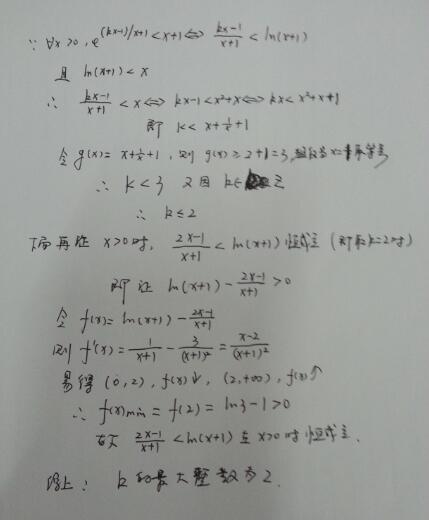 ∵ ∀x>0, e^{(kx-1)/x+1} < x+1 ⇔ \frac{kx-1}{x+1} < ln(x+1)
且 ln(x+1) < x
∴ \frac{kx-1}{x+1} < x ⇔ kx-1 < x²+x ⇔ kx < x²+x+1
即 k < x+\frac{1}{x}+1
令 g(x) = x+\frac{1}{x}+1, 则 g(x) ≥ 2+1=3, 当x=1
∴ k<3 又因 k∈Z
∴ k≤2
下面再证 x>0时, \frac{2x-1}{x+1} < ln(x+1) 恒成立 (即取k=2时)
即证 ln(x+1) - \frac{2x-1}{x+1} > 0
令 f(x) = ln(x+1) - \frac{2x-1}{x+1}
则 f'(x) = \frac{1}{x+1} - \frac{3}{(x+1)²} = \frac{x-2}{(x+1)²}
易得 (0,2), f(x)↓, (2,+∞), f(x)↑
∴ f(x)min = f(2) = ln3-1>0
\frac{2x-1}{x+1} < ln(x+1) 在 x>0 时恒成立.
综上: k的最大整数为2.